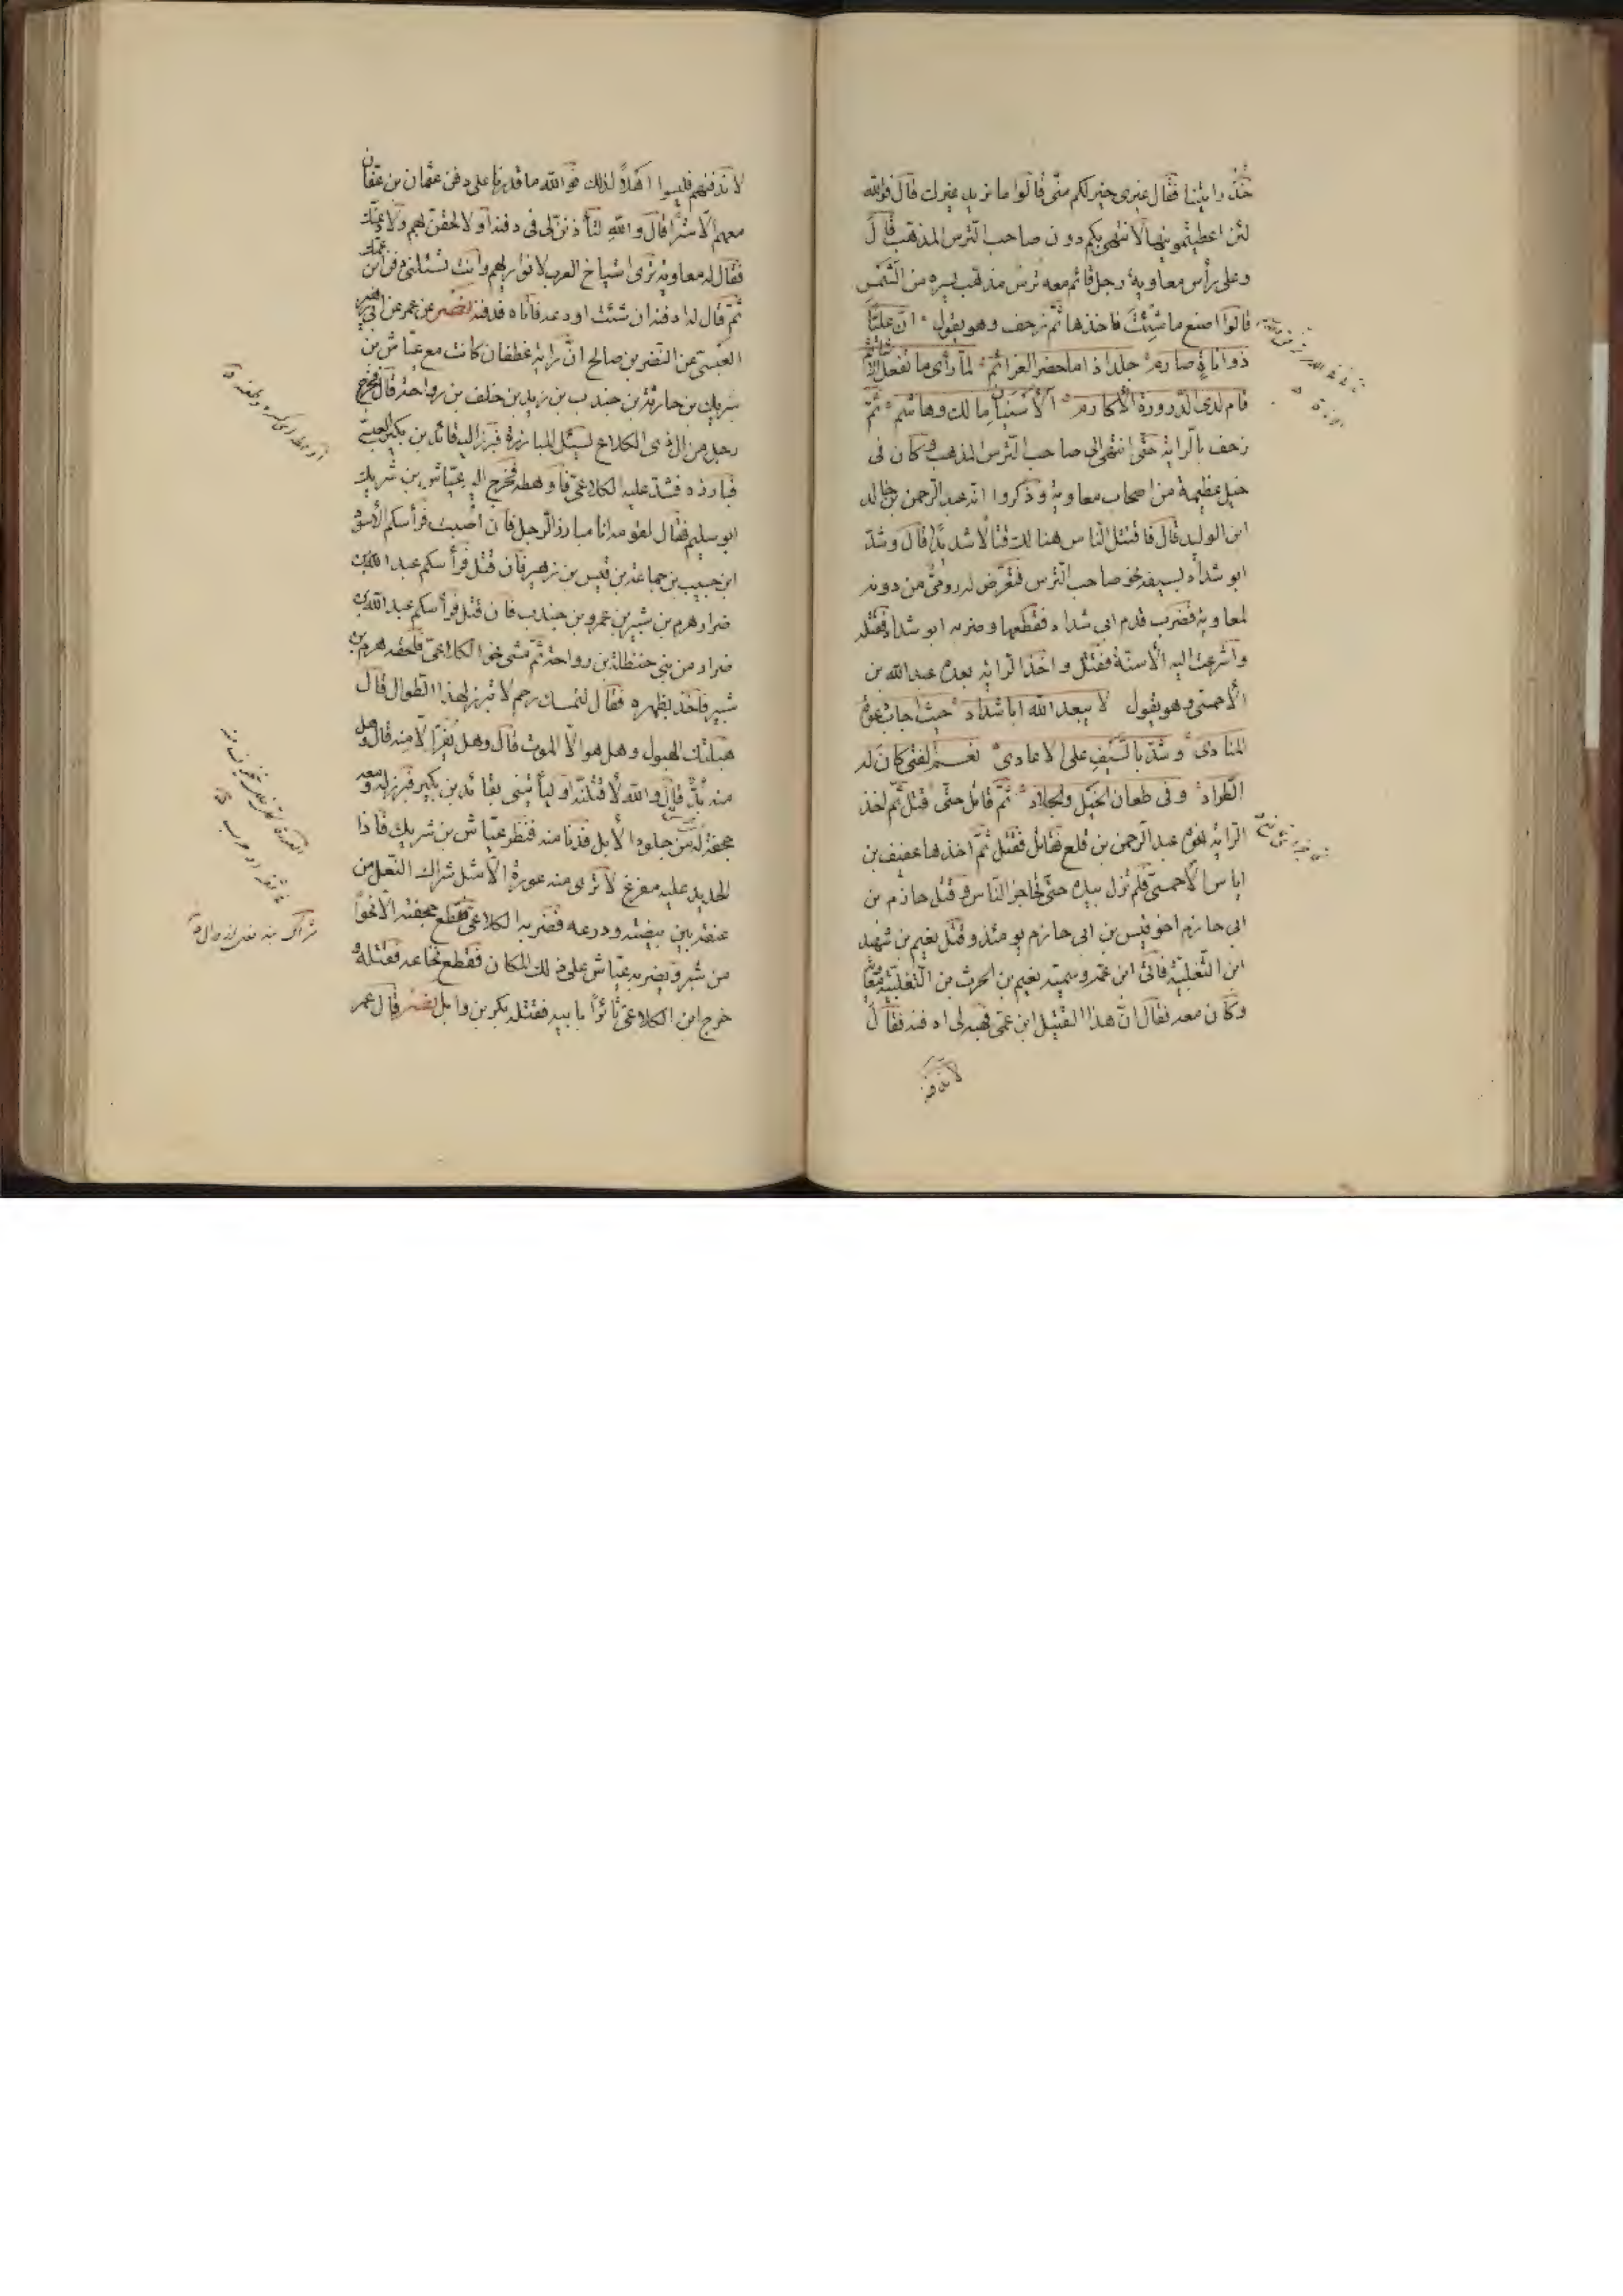 خذ رايتنا فقال غيرى خير لكم منّى قالوا ما نريد غيرك قال فوالله
لئن اعطيتمونيها لانتهى بكم دون صاحب الترس المذهب قال
وعلى رأس معاوية رجل قائم معه ترس مذهب يستره من الشمس
قالوا اصنع ما شئت فاخذها ثم زحف وهو يقول انّ عليّا
ذو اناة صارم جلد اذا ما حضر العزائم لمّا رأى ما تفعل الاشائم
قام لدى الذروة الاكارم الاشيبان مالك وهاشم ثمّ
زحف بالراية حتّى انتهى الى صاحب الترس المذهب وكان فى
خيل عظيمة من اصحاب معاوية وذكروا انه عبد الرحمن بن خالد
ابن الوليد قال فاقتتل الناس هنالك قتالا شديدا قال وشدّ
ابو شداد بسيفه نحو صاحب الترس فتعرّض له رومىّ من دونه
لمعاوية فضرب قدم ابى شداد فقطعها وضربه ابو شداد فقتله
واشرعت اليه الاسنّة فقتل واخذ الراية بعده عبد الله بن
الاحمسى وهو يقول لا يبعد الله ابا شداد حيث اجاب دعوة
المنادى وشدّ بالسيف على الاعادى نعم الفتى كان لدى
الطراد وفى طعان الخيل والجلاد ثمّ قاتل حتّى قتل ثمّ اخذ
الراية اخوه عبد الرحمن بن قلع فقاتل فقتل ثمّ اخذها عفيف بن
اياس الاحمسىّ فلم تزل بيده حتّى تحاجز الناس وقتل حازم بن
ابى حازم اخو قيس بن ابى حازم يومئذ وقتل نعيم بن شهيد
ابن التغلبيّة فاتى ابن عمّه وسميّه نعيم بن الحرث بن التغلبيّة معاوية
وكان معه فقال انّ هذا القتيل ابن عمّى فهبه لى ادفنه فقال
لا ندفنهم
لا تدفنهم فليسوا اهلا لذلك فوالله ما قدرنا على دفن عثمان بن عفان
معهم الّا سرّا قال والله لتأذننّ لى فى دفنه او لالحقنّ بهم ولادعنّك
فقال له معاوية ترى اشياخ العرب لا نواريهم وانت تسئلنى دفن ابن عمّك
ثمّ قال له ادفنه ان شئت او دعه فاتاه فدفنه نصر عن عمر عن ابى زهير
العبسىّ عن النضر بن صالح انّ راية غطفان كانت مع عيّاش بن
شريك بن حارثة بن جندب بن زيد بن خلف بن رواحة قال فخرج
رجل من ال ذى الكلاع ليسئل المبارزة فبرز اليه قائد بن بكير العبسىّ
فبارزه فشدّ عليه الكلاعىّ فاوهطه فخرج اليه عيّاش بن شريك
ابو سليم فقال لقومه انا مبارز الرجل فان اصبت فرأسكم الاسود
ابن حبيب بن جماعة بن قيس بن زهير فان قتل فرأسكم عبد الله بن
ضرار هرم بن شبير بن عمرو بن جندب فان قتل فرأسكم عبد الله بن
ضرار من بنى حنظلة بن رواحة ثمّ مشى نحو الكلاعىّ فلحقه هرم بن
شبير فاخذ بظهره فقال ليمسك رحم لا تبرز لهذا الطوال قال
هبلتك الهبول وهل هو الّا الموت قال وهل يفرّ الّا منه قال وهل
منه بدّ قال والله لاقتلنّه او ليأتينى بقائد بن بكير فبرز له ومعه
حجفة له من جلود الابل فدنا منه فنظر عيّاش بن شريك فاذا
الحديد عليه مفرغ لا ترى منه عورة الّا مثل شراك النعل من
عنقه بين بيضته ودرعه فضربه الكلاعىّ فقطع حجفته الّا نحوا
من شبر ويضربه عيّاش على ذلك المكان فقطع نخاعه فقتله و
خرج ابن الكلاعىّ ثائرا بابيه فقتله بكر بن وايل نصر قال عمر